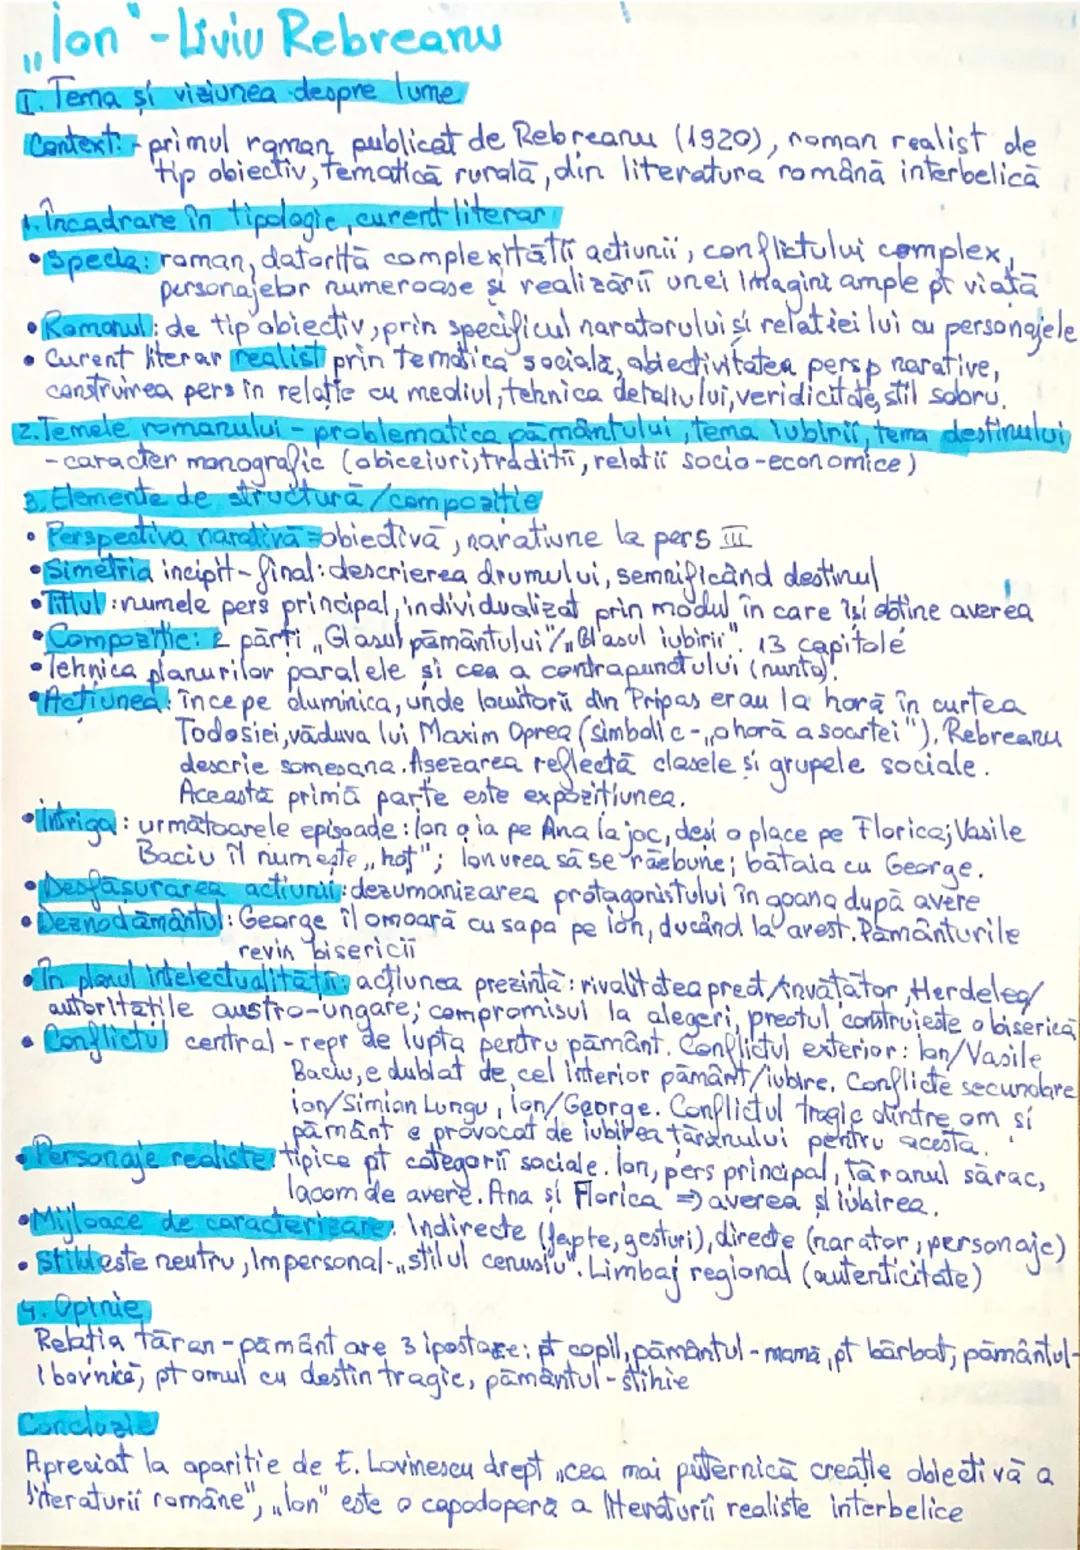 „Ion" - Liviu Rebreanu
I. Tema și viziunea despre lume
Context: - primul roman publicat de Rebreanu (1920), roman realist de
tip obiectiv, tematică rurală, din literatura română interbelică
1. Încadrare în tipologie, curent literar
• Specia: roman, datorită complexității acțiunii, conflictului complex,
personajelor numeroase și realizării unei imagini ample pt viață
• Romanul: de tip obiectiv, prin specificul naratorului și relației lui cu personajele
• Curent literar realist prin tematica socială, obiectivitatea persp narative,
construirea pers în relație cu mediul, tehnica detaliului, veridicitate, stil sobru.
2. Temele romanului - problematica pământului, tema iubirii, tema destinului
- caracter monografic (obiceiuri, tradiții, relații socio-economice)
3. Elemente de structură/compoziție
• Perspectiva narativă = obiectivă, narațiune la pers III
• Simetria incipit - final: descrierea drumului, semnificând destinul
• Titlul: numele pers principal, individualizat prin modul în care își obține averea
• Compoziție: 2 părți „Glasul pământului"/„Glasul iubirii". 13 capitole
• Tehnica planurilor paralele și cea a contrapunctului (nunta).
• Acțiunea: începe duminica, unde locuitorii din Pripas erau la horă în curtea
Todosiei, văduva lui Maxim Oprea (simbolic - „o horă a soartei"). Rebreanu
descrie someșana. Așezarea reflectă clasele și grupele sociale.
Această primă parte este expozițiunea.
• Intriga: următoarele episoade: Ion o ia pe Ana la joc, deși o place pe Florica; Vasile
Baciu îl numește „hoț"; Ion vrea să se răzbune; bătaia cu George.
• Desfășurarea acțiunii: dezumanizarea protagonistului în goana după avere
• Deznodământul: George îl omoară cu sapa pe Ion, ducând la arest. Pământurile
revin bisericii
• În planul intelectualității: acțiunea prezintă: rivalitatea preot/învățător, Herdelea/
autoritățile austro-ungare; compromisul la alegeri, preotul construiește o biserică
• Conflictul central - repr de lupta pentru pământ. Conflictul exterior: Ion/Vasile
Baciu, e dublat de cel interior pământ/iubire. Conflicte secundare
Ion/Simian Lungu, Ion/George. Conflictul tragic dintre om și
pământ e provocat de iubirea țăranului pentru acesta.
• Personaje realiste: tipice pt categorii sociale. Ion, pers principal, țăranul sărac,
lacom de avere. Ana și Florica => averea și iubirea.
• Mijloace de caracterizare: Indirecte (fapte, gesturi), directe (narator, personaje)
• Stilul este neutru, impersonal - „stilul cenușiu". Limbaj regional (autenticitate)
4. Opinie
Relația țăran - pământ are 3 ipostaze: pt copil, pământul - mamă, pt bărbat, pământul-
ibovnică, pt omul cu destin tragic, pământul - stihie
Concluzie
Apreciat la apariție de E. Lovinescu drept „cea mai puternică creație obiectivă a
literaturii române", „Ion" este o capodoperă a literaturii realiste interbelice